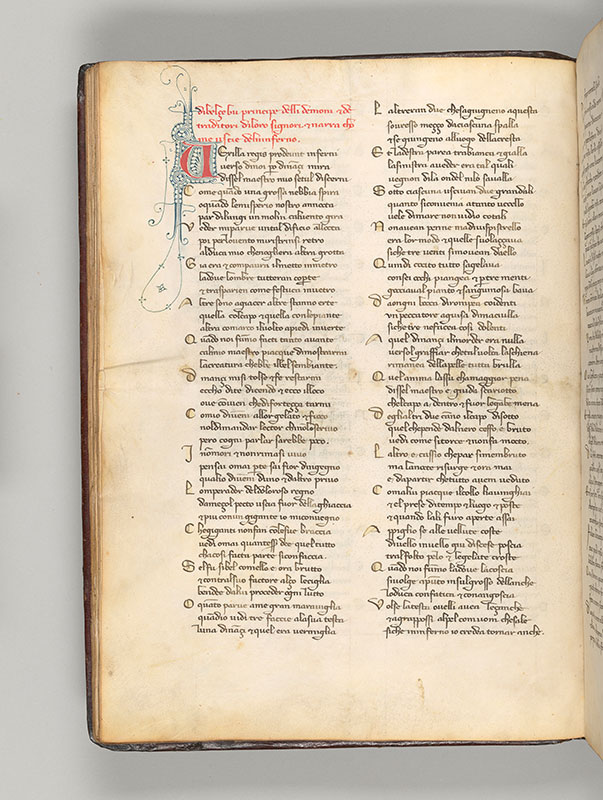 di belçebu principe delli demoni et de
traditori di loro signori et narra cho
me uscie delinferno.
VExilla regis prodeunt inferni
verso dinoi po dinançi mira
dissel maestro mio setul discerni
Come quado una grossa nebbia spira
o quado lemisperio nostro annocta
par dilungi un molin cheluento gira
Veder miparue untal dificio allocta
poi perlouento mirstrinsi retro
alduca mio chenogliera altra grotta
Gia era et compaura ilmetto inmetro
ladoue lombre tutteran coperte
et trasparien come festuca inuetro
Altre sono agiacer altre stanno erte
quella colcapo et quella conlepiante
altra comarco iluolto apiedi inuerte
Quado noi fumo facti tanto auante
calmio maestro piacque dimostrarmi
lacreatura chebbe ilbel sembiante
Dinançi misi tolse et fe restarmi
eccho dite dicendo et ecco illoco
oue conuen chedi forteçça tarmi
Comio diueni allor gelato et fioco
nol dimandar lector chinolo scriuo
pero cogni parlar sarebbe poco.
Inomori et nonrimasi uiuo
pensa omai pte sai fior dingegno
qualio diueni duno et daltro priuo
Lomperador deldoloroso regno
dameçol pecto uscia fuor dellaghiaccia
et piu conun gigante io miconuegno
Chegiganti nonfan colesue braccia
vedi omai quantesser dee quel tutto
chacosi facta parte siconfaccia
Selfu sibel comelli e ora brutto
et contralsuo factore alço leciglia
bende dalui proceder ogni lutto
O quato parue ame gran marauiglia
quadio uidi tre faccie alasua testa
luna dinaçi et quel era uermiglia
Laltreran due chesagiugneno aquesta
souresso meçço daciascuna spalla
et segiungeno alluogo dellacresta
Et ladestra parea trabianca et gialla
lasinistra aueder era tal quali
vegnon dila ondel nilo sauualla
Sotto ciascuna uscivan due grandali
quanto siconuenia atanto uccello
vele dimare nonuidio cotali
Nonauean penne madiuispistrello
era lor modo et quelle suolaçcaua
siche tre uenti simouean daello
Quindi cocito tutto sagelaua
consei occhi piangea et ptre menti
gocciaual pianto et sanguinosa baua
Daogni bocca dirompea codenti
un peccatore aguisa dimaciulla
siche tre nefacea cosi dolenti
Aquel dinançi ilmorder era nulla
versol graffiar chetaluolta laschiena
rimanea dellapelle tutta brulla
Quelanima lassu chamaggior pena
dissel maestro e giuda scariotto
chelcapo a dentro et fuor legambe mena
Deglialtri due canno ilcapo disotto
quel chepende dalnero ceffo e bruto
vedi come sitorce et nonfa motto.
Laltro e cassio chepar simembruto
ma lanocte risurge et ora mai
e dapartir chetutto auem ueduto
Comalui piacque ilcollo liauinghiai
et el prese ditempo et luogo et poste
et quando lali furo aperte assai
Appiglio se alle uellute coste
diuello inuello giu discese poscia
tralfolto pelo et legelate croste
Quado noi fumo ladoue lacoscia
siuolge apunto insulgrosso dellanche
loduca confatica et conangoscia
Volse latesta ouelli auea leçanche
et agrapposi alpel comuom chesale
siche ninferno io credea tornar anche.